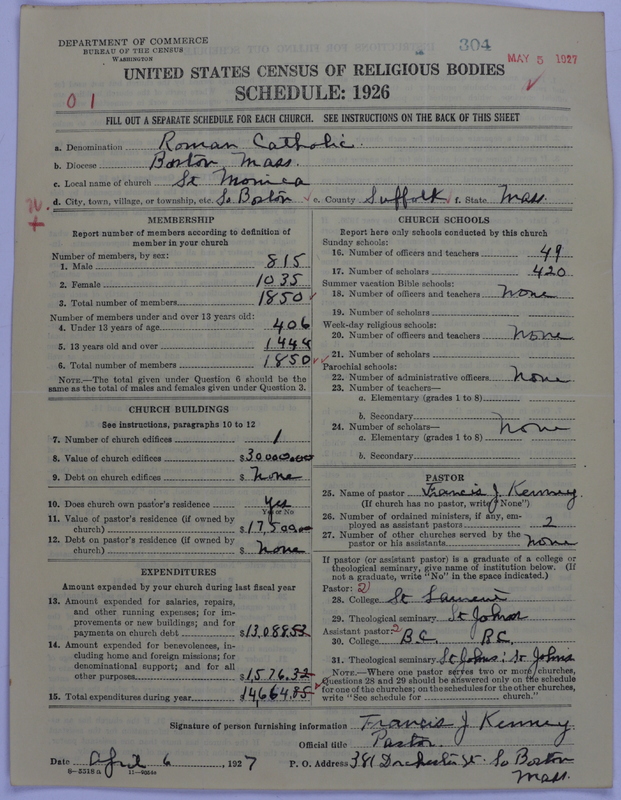 DEPARTMENT OF COMMERCE
BUREAU OF THE CENSUS
WASHINGTON
304
MAY 5 1927
UNITED STATES CENSUS OF RELIGIOUS BODIES
SCHEDULE: 1926
0 1
FILL OUT A SEPARATE SCHEDULE FOR EACH CHURCH. SEE INSTRUCTIONS ON THE BACK OF THIS SHEET
a. Denomination Roman Catholic.
b. Diocese Boston, Mass.
c. Local name of church St Monica
d. City, town, village, or township, etc. So Boston e. County Suffolk f. State Mass.
MEMBERSHIP
Report number of members according to definition of member in your church
Number of members, by sex:
1. Male 815
2. Female 1035
3. Total number of members 1850
Number of members under and over 13 years old:
4. Under 13 years of age 406
5. 13 years old and over 1444
6. Total number of members 1850
NOTE.—The total given under Question 6 should be the same as the total of males and females given under Question 3.
CHURCH BUILDINGS
See instructions, paragraphs 10 to 12
7. Number of church edifices 1
8. Value of church edifices $30000.00
9. Debt on church edifices $ None
10. Does church own pastor's residence Yes
Yes or No
11. Value of pastor's residence (if owned by church) $17,500.00
12. Debt on pastor's residence (if owned by church) $ None
EXPENDITURES
Amount expended by your church during last fiscal year
13. Amount expended for salaries, repairs, and other running expenses; for improvements or new buildings; and for payments on church debt $13,088.53
14. Amount expended for benevolences, including home and foreign missions; for denominational support; and for all other purposes $1,576.32
15. Total expenditures during year $14,664.85
CHURCH SCHOOLS
Report here only schools conducted by this church
Sunday schools:
16. Number of officers and teachers 49
17. Number of scholars 420
Summer vacation Bible schools:
18. Number of officers and teachers None
19. Number of scholars
Week-day religious schools:
20. Number of officers and teachers None
21. Number of scholars
Parochial schools:
22. Number of administrative officers None
23. Number of teachers—
a. Elementary (grades 1 to 8)
b. Secondary
24. Number of scholars— None
a. Elementary (grades 1 to 8)
b. Secondary
PASTOR
25. Name of pastor Francis J. Kenney
(If church has no pastor, write "None")
26. Number of ordained ministers, if any, employed as assistant pastors 2
27. Number of other churches served by the pastor or his assistants None
If pastor (or assistant pastor) is a graduate of a college or theological seminary, give name of institution below. (If not a graduate, write "No" in the space indicated.)
Pastor: 2
28. College St Laurent
29. Theological seminary St Johns
Assistant pastor: 2
30. College B.C. B.C.
31. Theological seminary St Johns: St Johns
NOTE.—Where one pastor serves two or more churches, Questions 28 and 29 should be answered only on the schedule for one of the churches; on the schedules for the other churches, write "See schedule for church."
Signature of person furnishing information Francis J. Kenney
Official title Pastor.
Date April 6, 1927 P. O. Address 381 Dorchester St. So Boston
Mass.
8-5518a 11-9054a